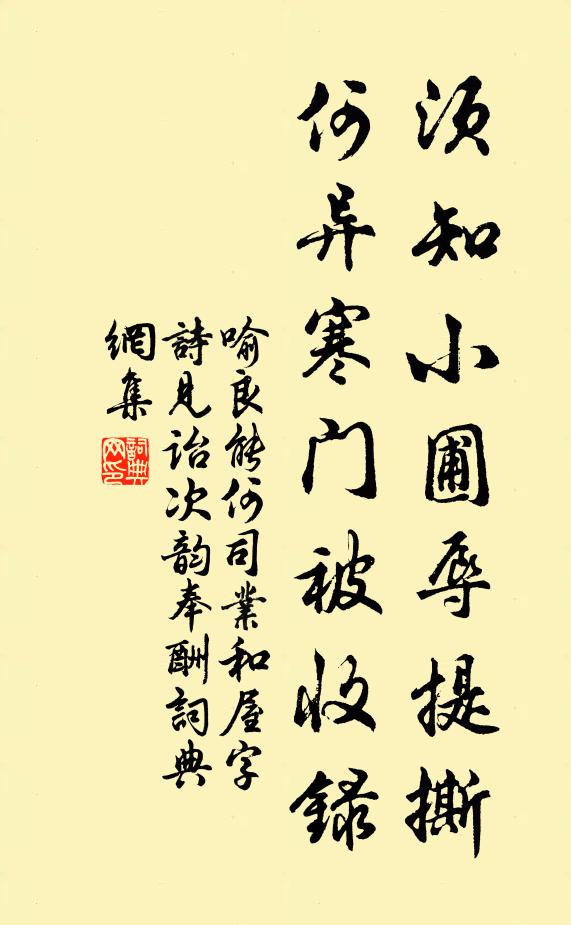 须知小圃辱提撕
何异寒门被收録
喻良能何司業和屋字
詩見詒次韵奉酬詞典
網集
詞典
网印